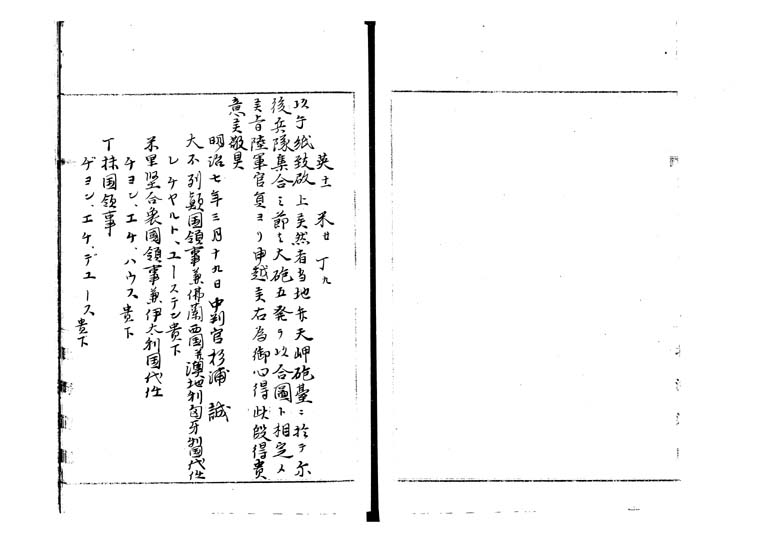 英士 米廿 丁九
以手紙致啟上候然者当地弁天岬砲臺ニ於テ尔
後兵隊集合之節ハ大砲五発ヲ以合圖ト相定メ
候旨陸軍官員ヨリ申越候右為御心得此段得貴
意候敬具
明治七年三月十九日 中判官杉浦 誠
大不列顛国領事兼佛蘭西国並澳地利匈牙利国代任
レケヤルト、ユーステン貴下
米里堅合衆國領事兼伊太利国代任
チヨン、エチ、ハウス貴下
丁抹国領事
ゲヨン、エケ、デユース貴下